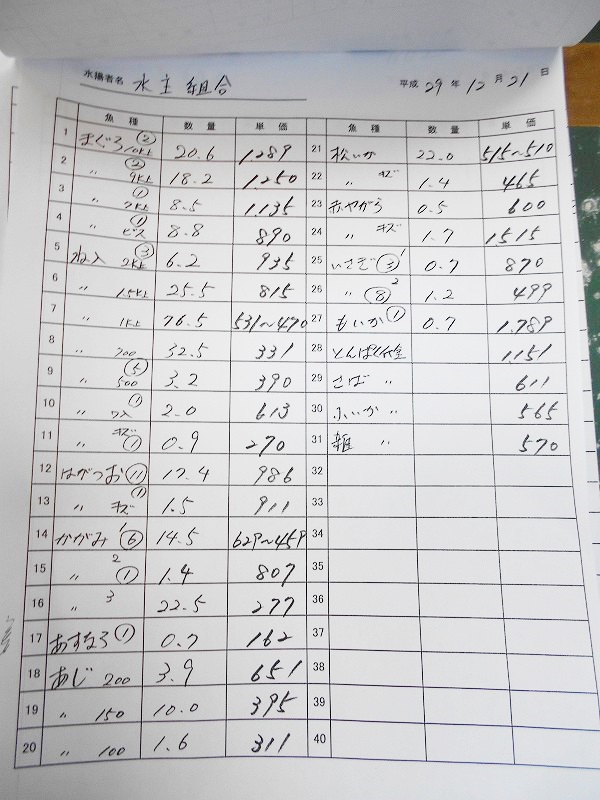 水揚者名 水主組合
平成 29 年 12 月 21 日
魚種 数量 単価
1 まぐろ 10kg ② 20.6 1289
2 〃 9kg ② 18.2 1250
3 〃 7kg ① 8.5 1,135
4 〃 ビス ① 8.8 890
5 ね入 2kg ③ 6.2 935
6 〃 1.5kg 25.5 815
7 〃 1kg 76.5 531~470
8 〃 700 32.5 331
9 〃 500 ⑤ 3.2 390
10 〃 入 ① 2.0 613
11 〃 キズ ① 0.9 270
12 はがつお ⑪ 17.4 986
13 〃 キズ ① 1.5 911
14 かがみ 1 ⑥ 14.5 629~459
15 〃 2 ① 1.4 807
16 〃 3 22.5 277
17 あすなろ ① 0.7 162
18 あじ 200 3.9 651
19 〃 150 10.0 395
20 〃 100 1.6 311
魚種 数量 単価
21 松いか 22.0 515~510
22 〃 キズ 1.4 465
23 赤やがら 0.5 600
24 〃 キズ 1.7 1515
25 いさぎ ③ 1 0.7 870
26 〃 ⑧ 2 1.2 499
27 もいか ① 0.7 1,789
28 とんぱく 1,151
29 さば 〃 611
30 ふいか 〃 565
31 雑 〃 570
32
33
34
35
36
37
38
39
40